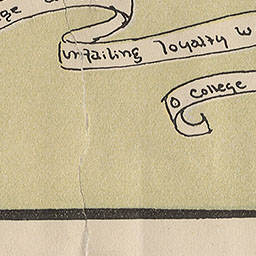 ge
unfailing loyalty w
o college